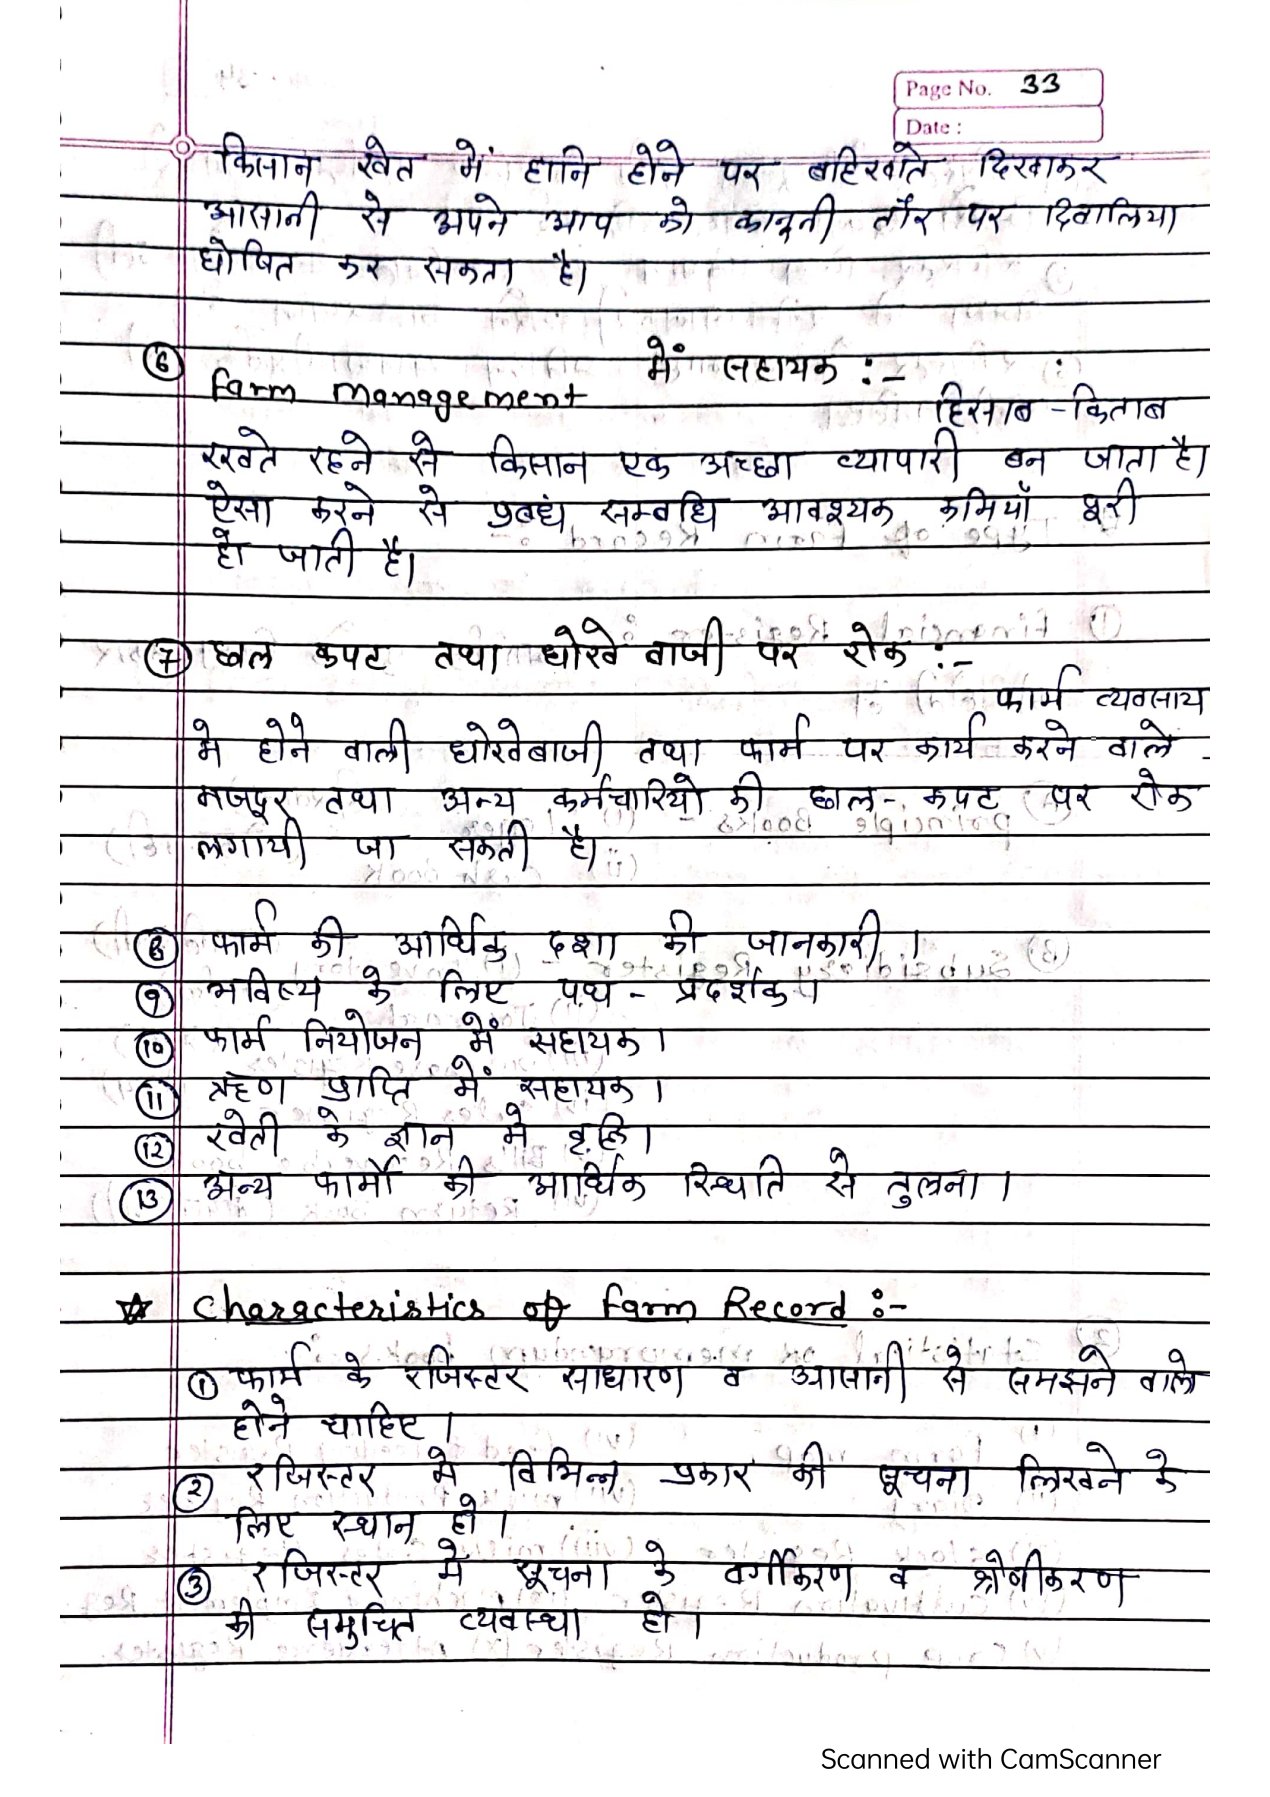 Page No. 33
Date :
किसान खेत में हानि होने पर बहिखाते दिखाकर
आसानी से अपने आप को कानूनी तौर पर दिवालिया
घोषित कर सकता है।
⑥ Farm management में सहायक :-
हिसाब - किताब
रखते रहने से किसान एक अच्छा व्यापारी बन जाता है।
ऐसा करने से प्रबधं सम्बधि आवश्यक कमियाँ पूरी
हो जाती है।
⑦ छल कपट तथा धोखे बाजी पर रोक :-
फार्म व्यवसाय
मे होने वाली धोखेबाजी तथा फार्म पर कार्य करने वाले
मजदूर तथा अन्य कर्मचारियो की छाल - कपट पर रोक
लगायी जा सकती है।
⑧ फार्म की आर्थिक दशा की जानकारी ।
⑨ भविष्य के लिए पथ - प्रदर्शक ।
⑩ फार्म नियोजन में सहायक ।
⑪ ऋण प्राप्ति में सहायक ।
⑫ खेती के ज्ञान मे वृद्धि ।
⑬ अन्य फार्मो की आर्थिक स्थिति से तुलना ।
☆ Characteristics of Farm Record :-
① फार्म के रजिस्टर साधारण व आसानी से समझने वाले
होने चाहिए ।
② रजिस्टर मे विभिन्न प्रकार की सूचना लिखने के
लिए स्थान हो ।
③ रजिस्टर में सूचना के वर्गीकरण व श्रेणीकरण
की समुचित व्यवस्था हो ।
Scanned with CamScanner